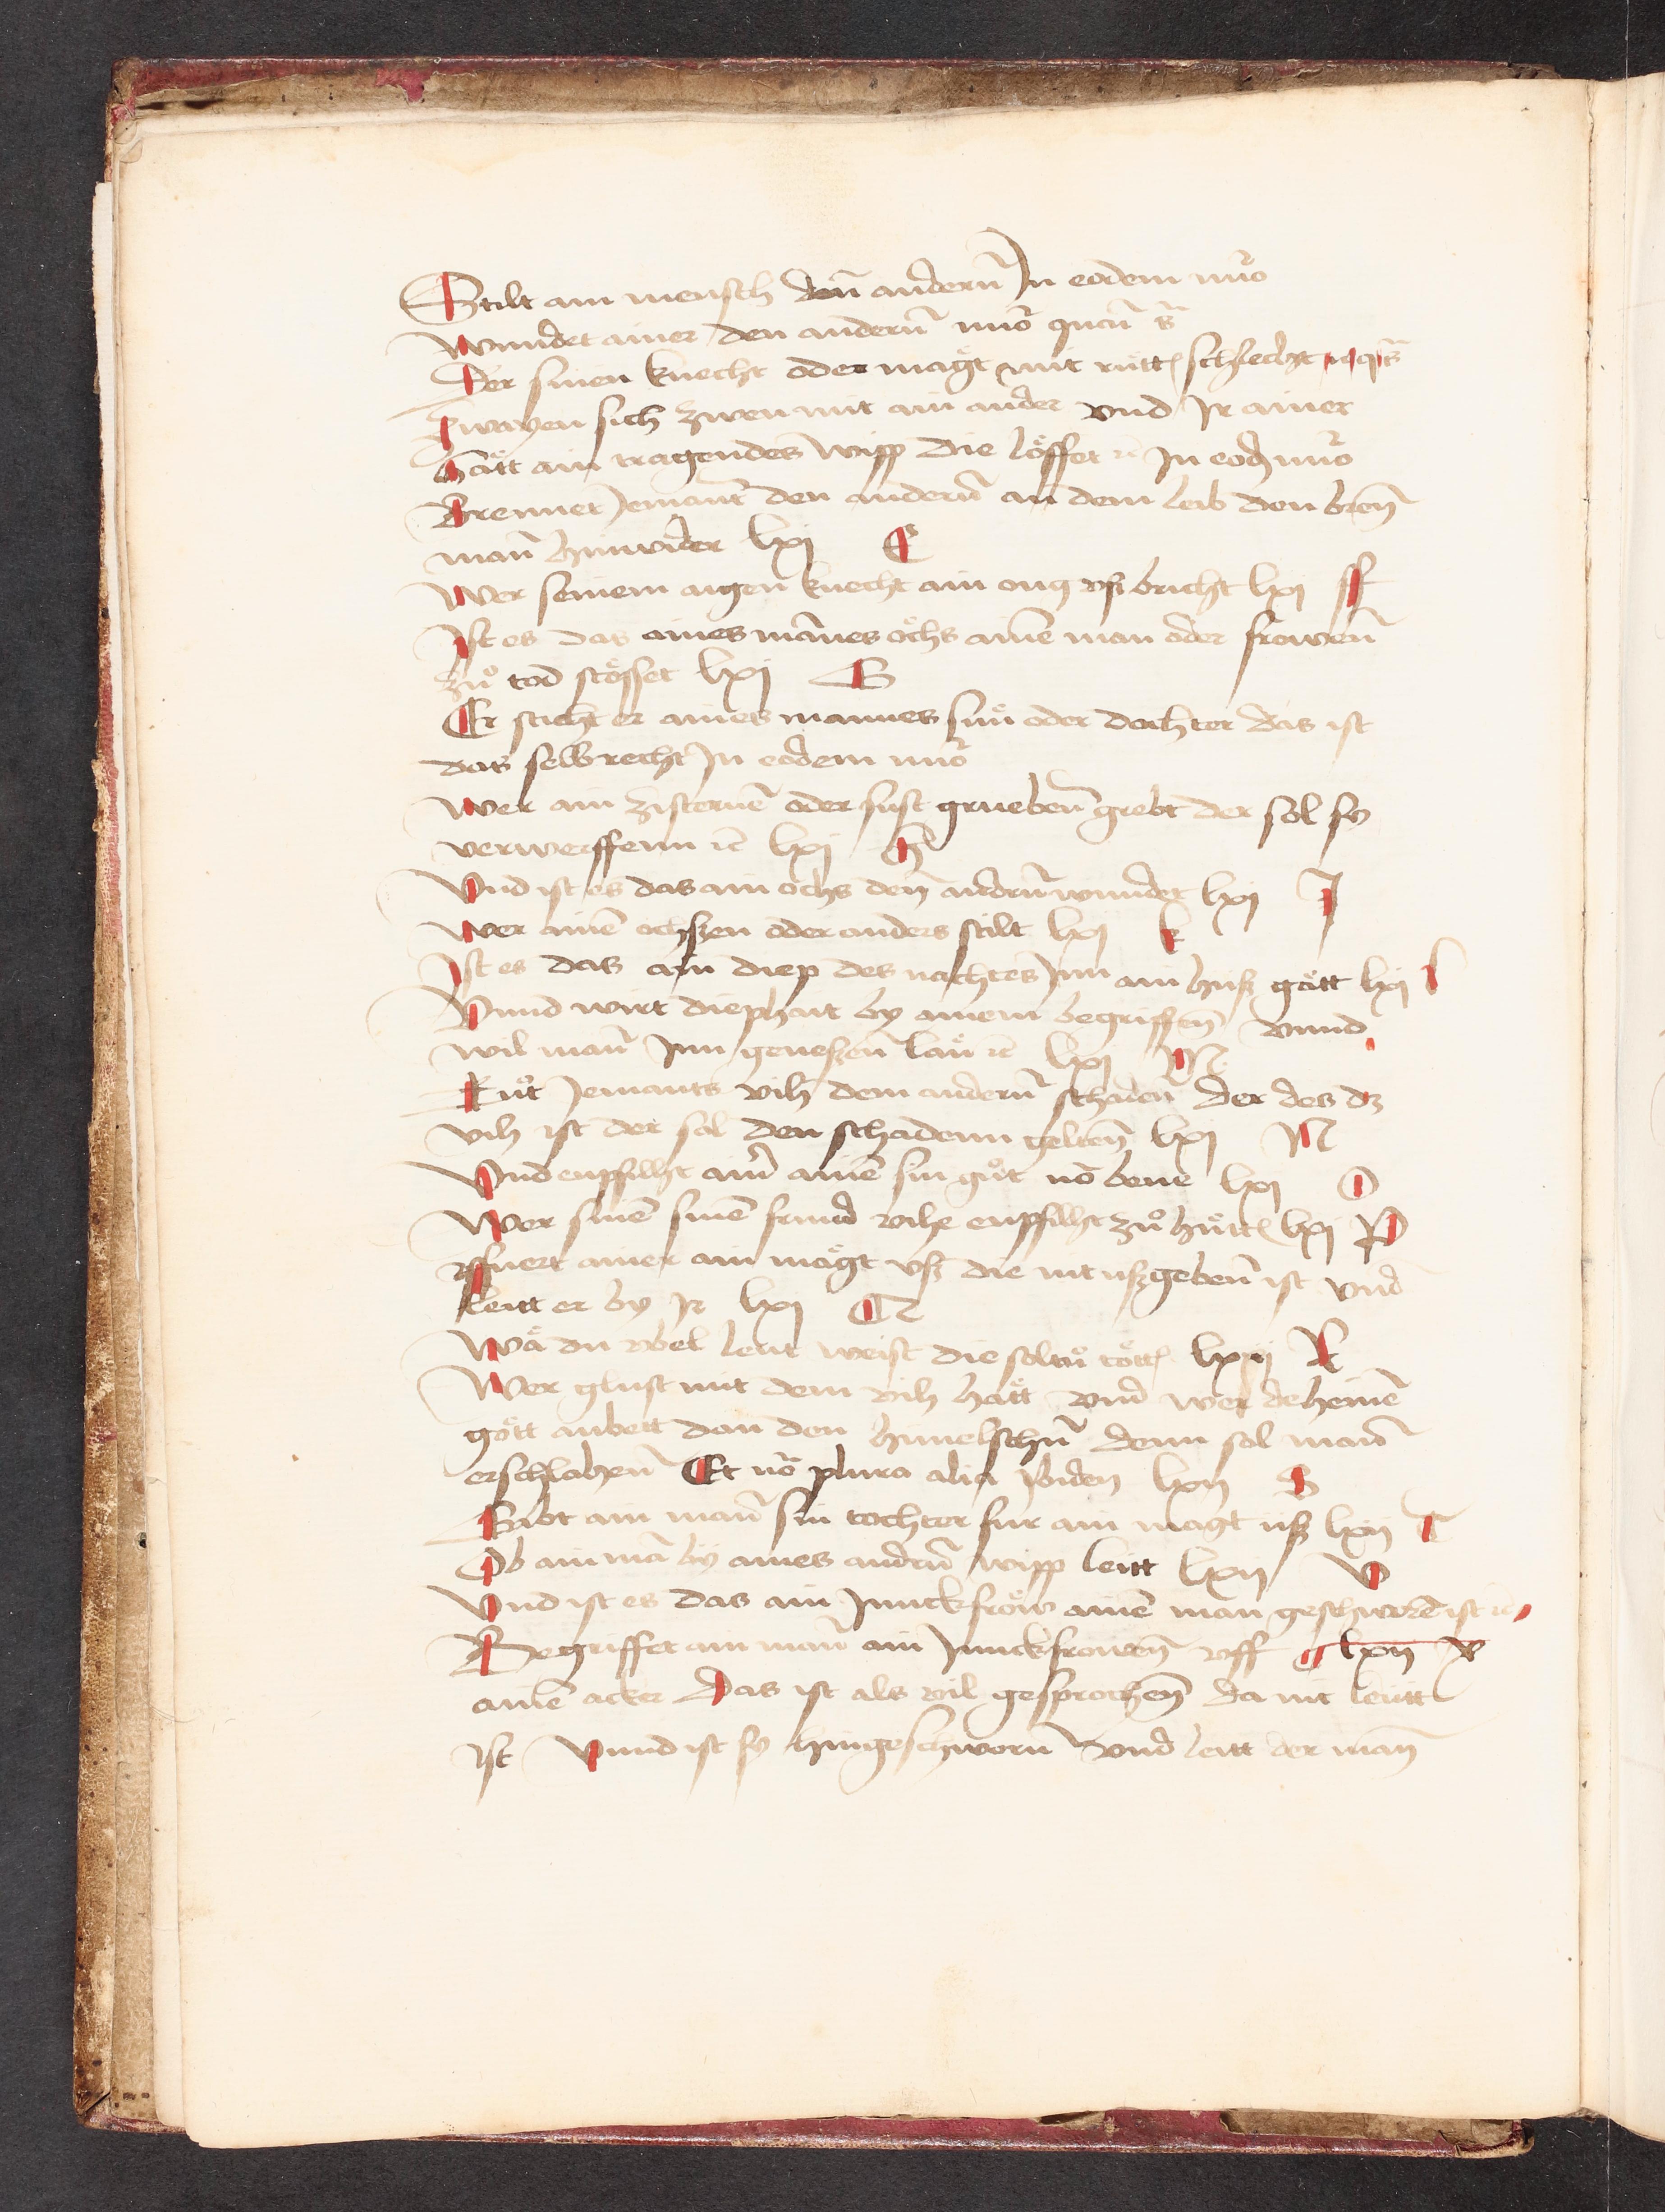 Stilt ain mensch denn anderñ In eodem nũo
Wundet ainer den anderñ nũo
Der sinen knecht oder magt mit rutt schlecht
Zwayen sich zwen mit ain ander vnd Jr ainer
Hatt ain tragendes wipp die löffet rc In eod nũo
Brennet Jemant den anderñ an dem leib den breñ
mañ hinwider lxj E
Wer seinem aigen knecht ain oug vß bricht lxj ff
Ist es das aines mãnes ochs ainē man oder frowen̄
zů tod stösset lxj G
Er sticht er aines mannes sun oder dochter das ist
das selb recht In eodem nũo
Wer ain zisternē oder sust grueben̄ grebt der sol sy
verwerffenn rc lxj H
Vnd ist es das ain ochs den̄ andrñ wundet lxj J
Wer ainē ochszen oder anders stilt lxj k
Ist es das ain diep des nachtes Jnn ain huß gatt lxj l
Vnnd wirt diephait by ainem begriffen̄ vnnd
wil mañ Jnn geneszen̄ lan rc lxj M
Tůt Jemants vih dem anderñ schaden̄ der des dz
vih ist der sol den schadenn gelten̄ lxj N
Vnd enpfilht ainer ainē sin gůt nō bene lxj O
Wer sinē sinē frund vihe enpfilht zů hůtt lxj P
Effuert ainer ain magt vß die nit ußgeben̄ ist vnd
leitt er by Jr lxj Q
Wa du vbel leut weist die soltu tött lxij R
Wer glust mit dem vih hatt vnd wer deheinē
gött anbett dan den himelschñ denn sol mañ
erschlahen̄ Et nō plura alia ibidem lxij S
Gibt ain mañ sin tochter fur ain magt uß lxij T
Ob ain mā by aines andrñ wipp leitt lxij V
Vnd ist es das ain Junckfrow ainē man geschworē ist rc
Begriffet ain mañ ain Junckfrowen̄ vff lxij X
ainē acker Das ist als vil gesprochen̄ da nit leutt
ist Vnnd ist sy hingeschworñ Vnd leitt der mañ